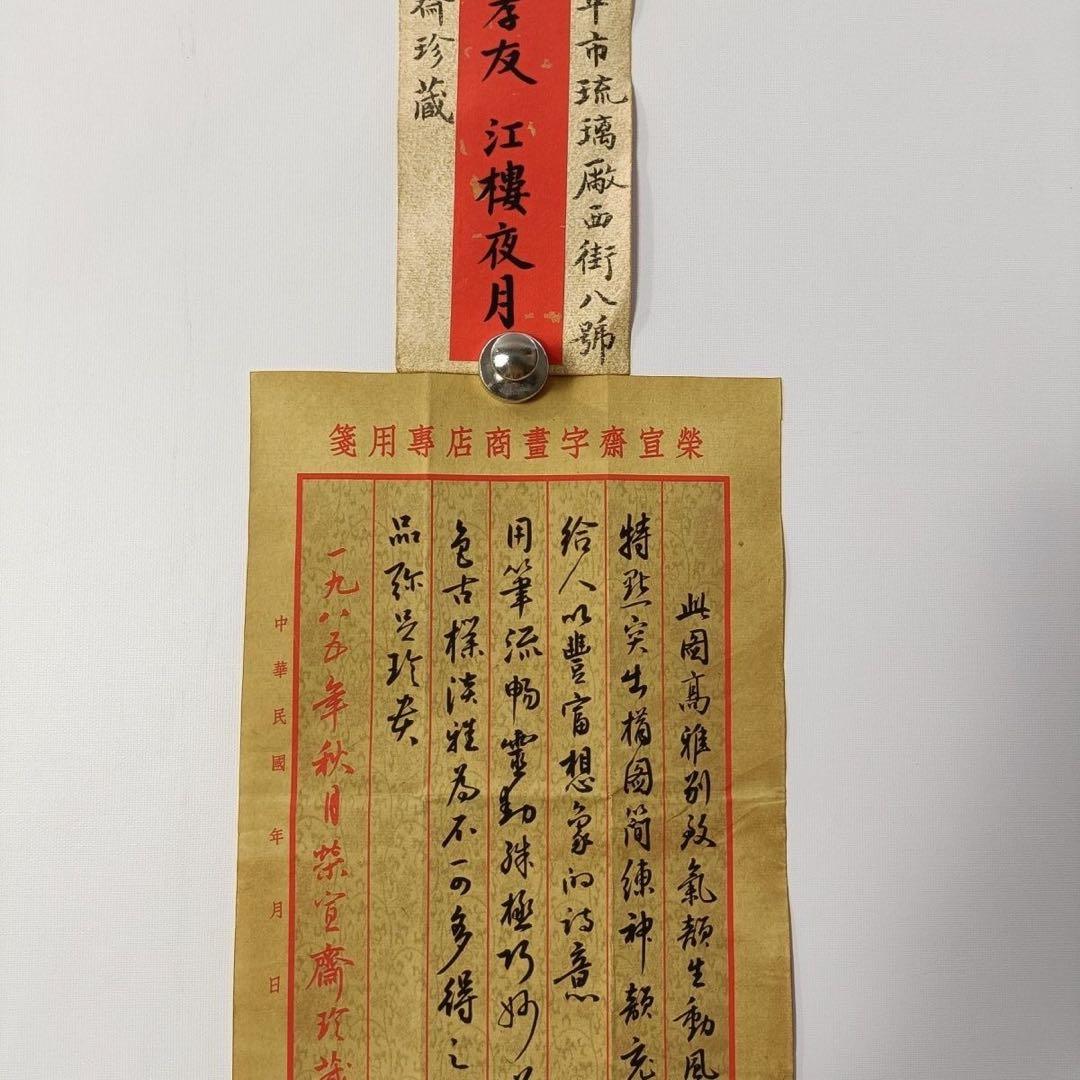 市琉璃廠西街八號
友 江樓夜月
珍藏
榮宣齋字畫商店專用箋
此图高雅别致氣韻生動風
特點突出構图简練神韻充
给人以豐富想象的诗意
用筆流畅靈動殊極巧妙
色古樸淡雅為不可多得之
品弥足珍贵
一九八五年秋月榮宣齋珍藏
中華民國 年 月 日